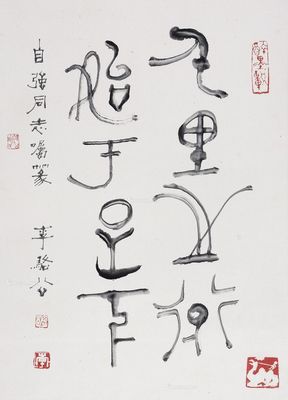 千里之行
始于足下
自强同志嘱篆
李駱公